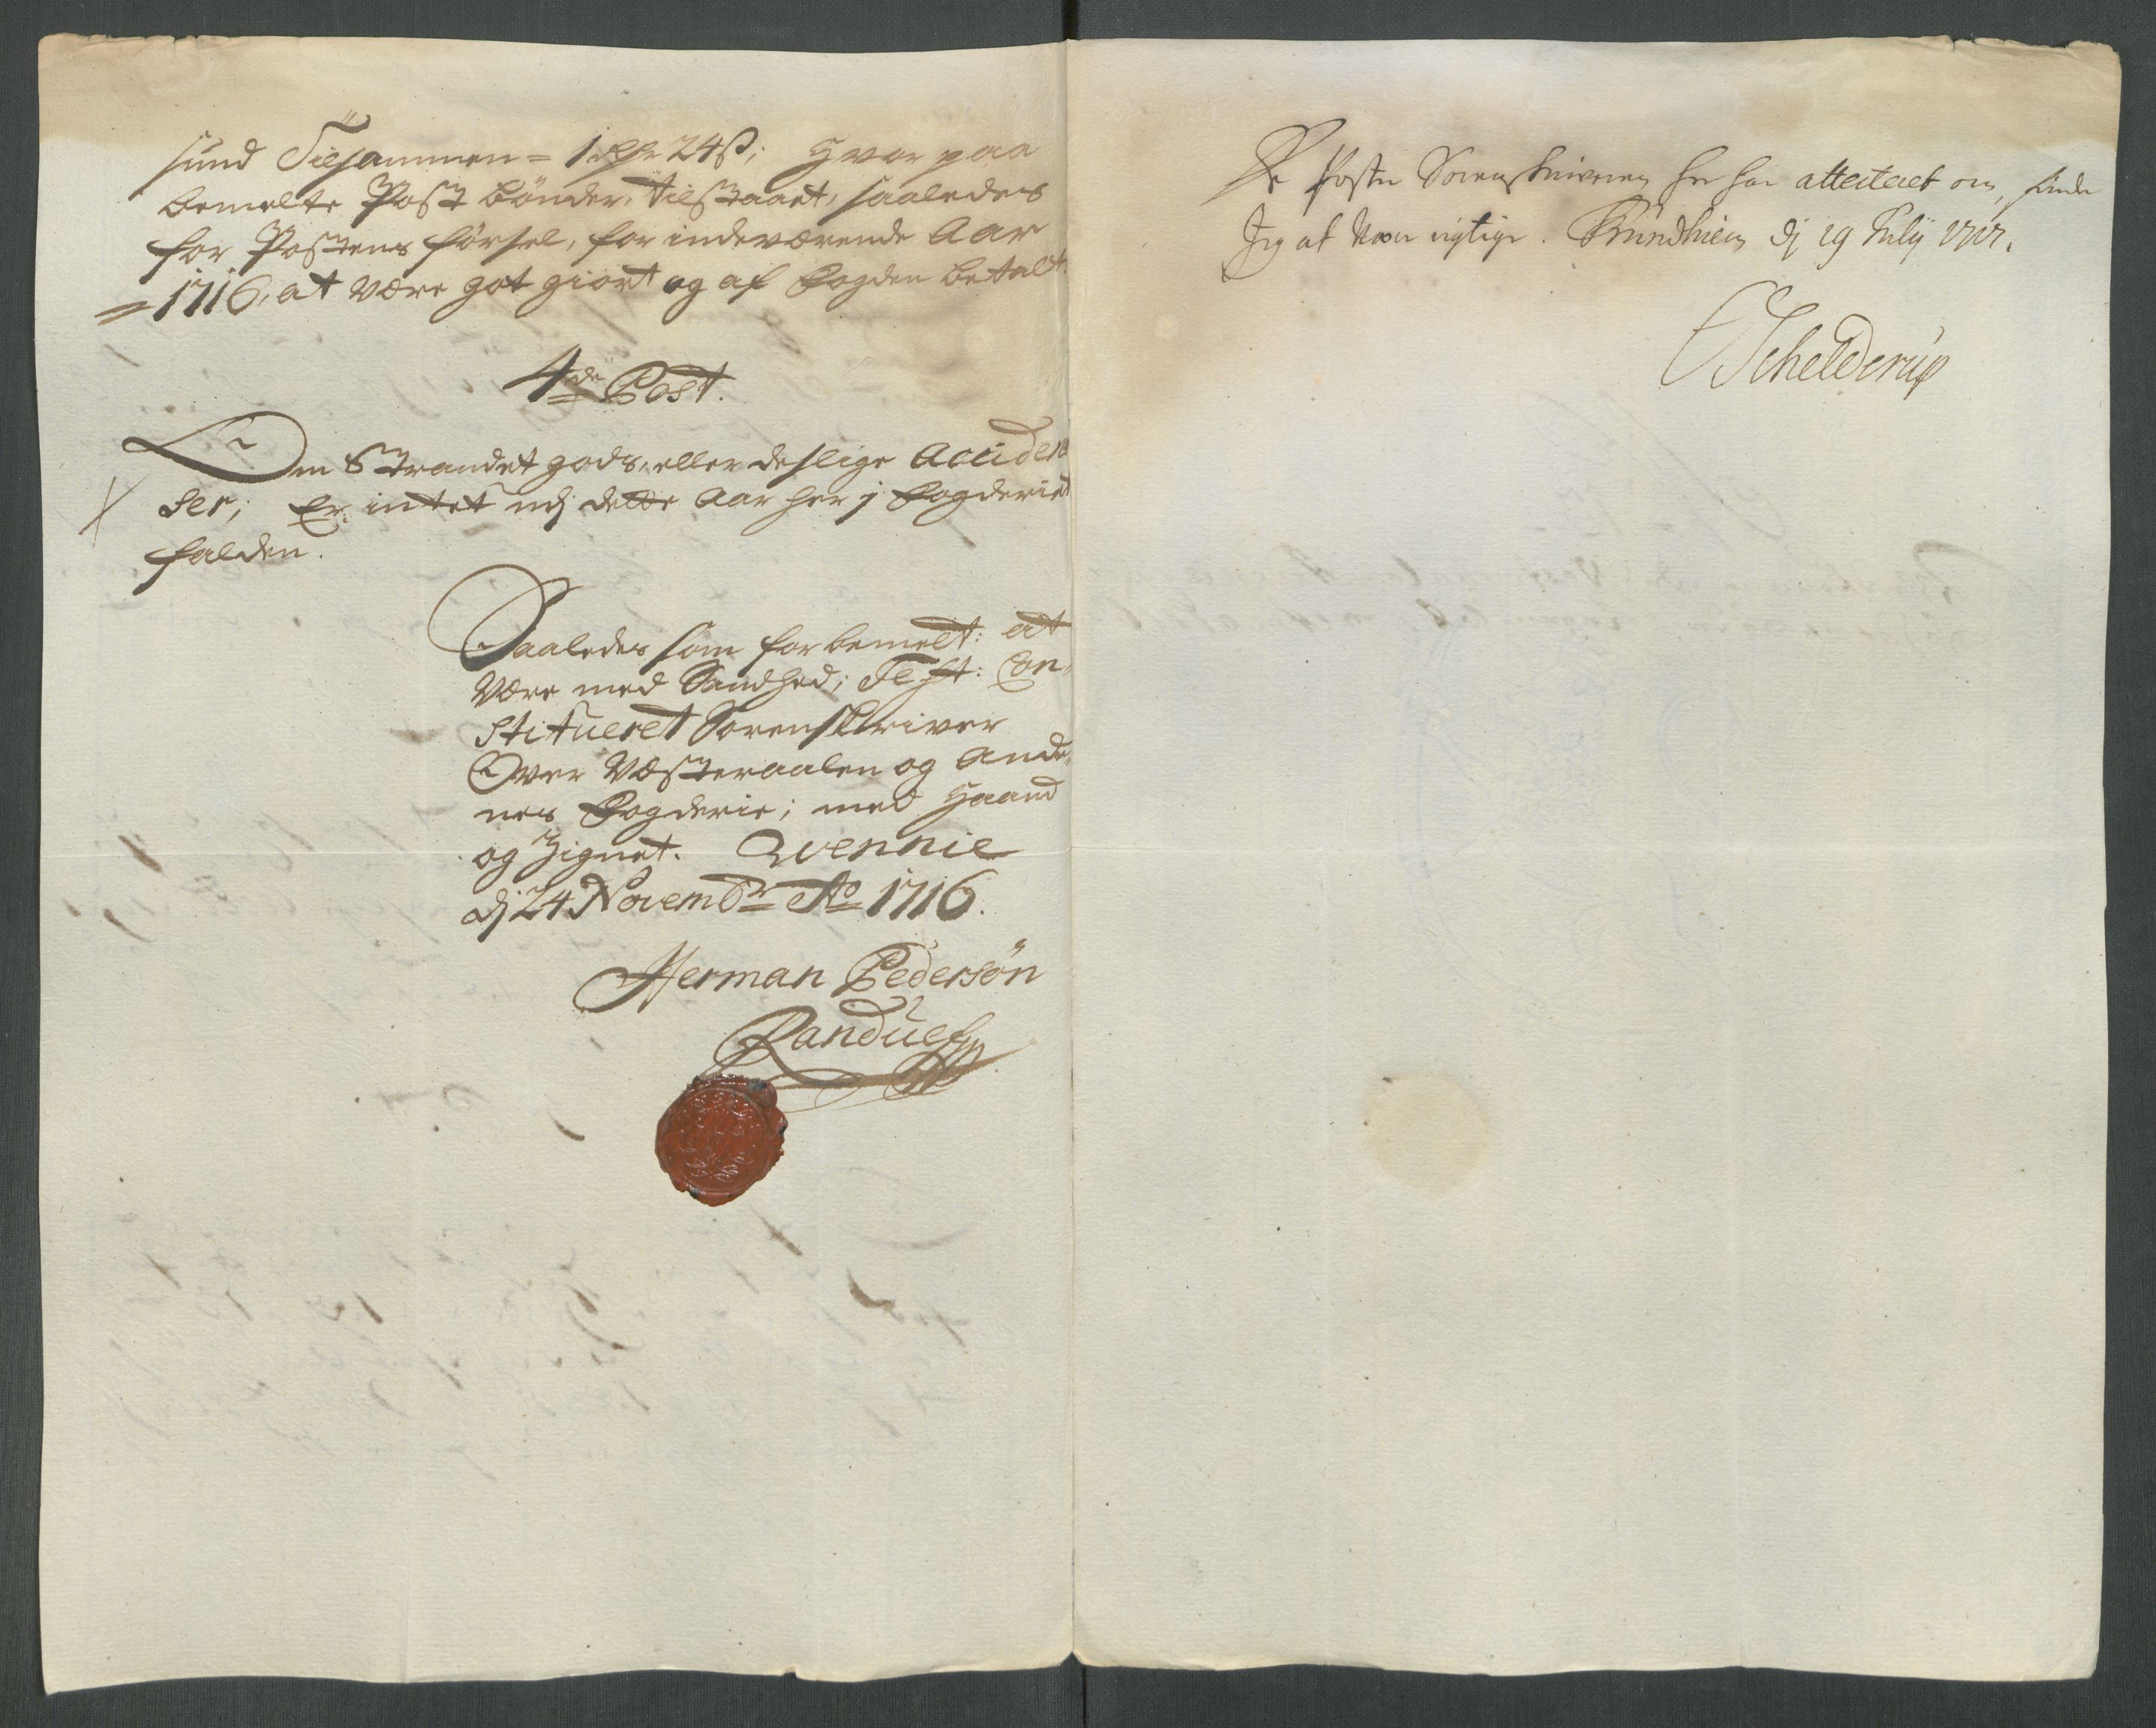 sund Tilsammen = 1 rdr 24 ß; Hvor paa
bemelte Post bønder, tilstaaet, saaledes
for Postens førsel, for indeværende Aar
= 1716, at være got giort og af Fogden betalt.
4de Post.
Om Strandet gods, eller deslige Acciden
ser; Er intet udj dette Aar her j Fogderiet
falden.
Saaledes som forbemelt: at
være med Sandhed; Test: Con,
stitueret Sorenskriver
Over Vesteraalen og Ande,
nes Fogderie; med Haand
og Zignet. Qvennie
dj 24 Novembr Ao 1716.
Herman Pedersøn
Randulf
De Poster Sorenskriveren her har attesteret om, finder
Jeg at være rigtige. Trundhiem dj 19 Julij 1717.
Schelderup